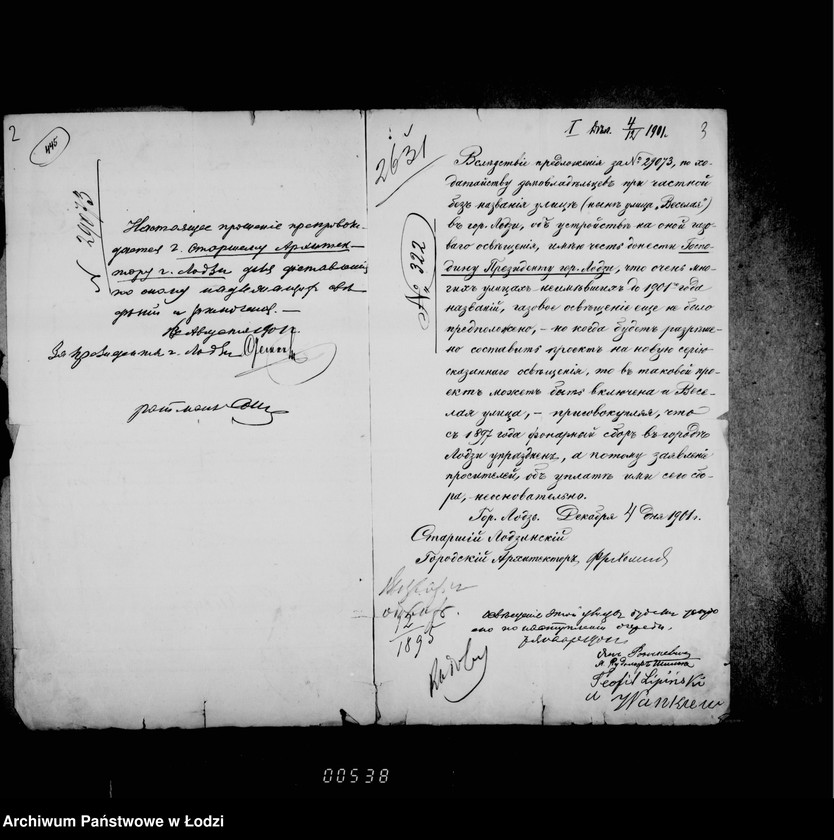 2
445
N 29073
Настоящее прошение препровож-
дается г. Старшему Архитек-
тору г. Лодзи для доставления
по оному надлежащих све-
дѣній и заключения. —
Августа 1901 г.
За Президента г. Лодзи
ратман
I Отд. 4/XII 1901.
3
2631
№ 322
Вслѣдствіе предложенія за № 29073, по хо-
датайству домовладѣльцевъ при частной
безъ названія улицѣ (нынѣ улица „Веселая")
въ гор. Лодзи, объ устройствѣ на оной газо-
ваго освѣщенія, имѣю честь донести Госпо-
дину Президенту гор. Лодзи, что очень мно-
гихъ улицахъ неимѣвшихъ до 1901 года
названій, газовое освѣщеніе еще не было
предположено, — но когда будетъ разрѣше-
но составить проектъ на новую серію
сказаннаго освѣщенія, то въ таковой про-
ектъ можетъ быть включена и Весе-
лая улица, — присовокупляя, что
съ 1897 года фонарный сборъ въ городѣ
Лодзи упраздненъ, а потому заявленіе
просителей, объ уплатѣ ими сего сбо-
ра, — неосновательно.
Гор. Лодзь. Декабря 4 дня 1901 г.
Старшій Лодзинскій
Городскій Архитекторъ,
1895
освѣщеніе этой улицы будетъ
но по наступленіи очереди,
Teofil Lipiński
00538
Archiwum Państwowe w Łodzi